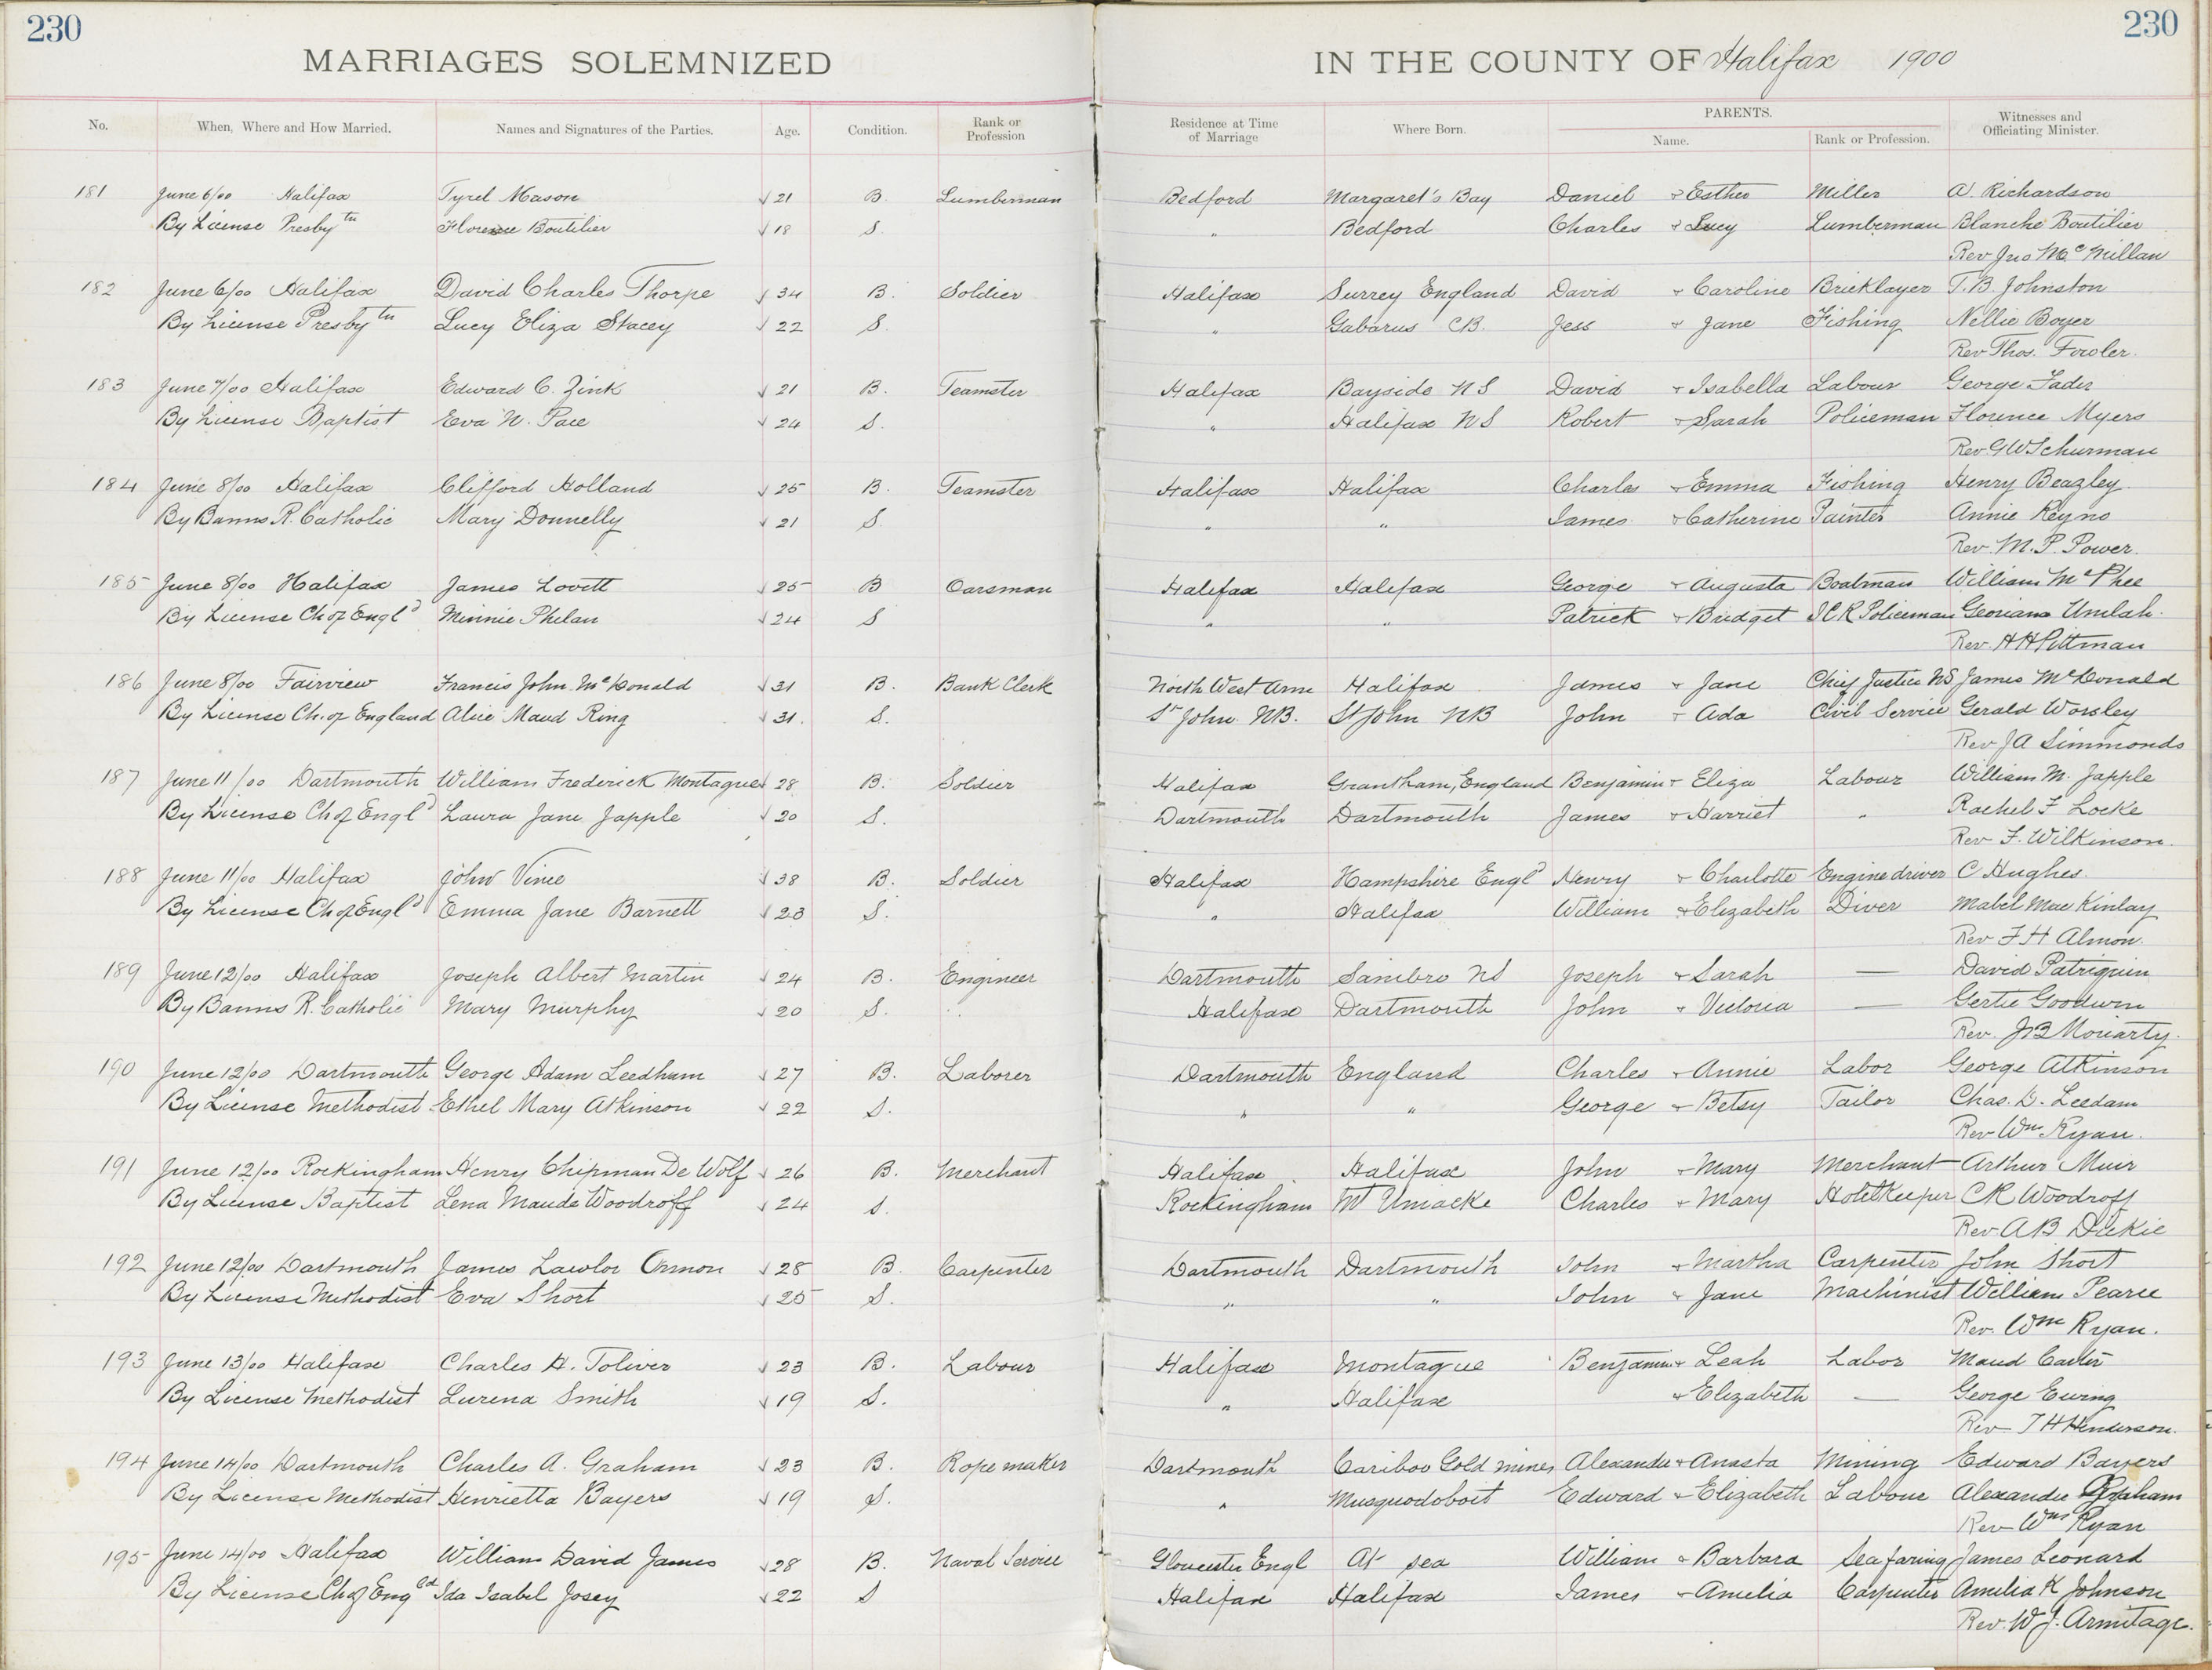 230
230
MARRIAGES SOLEMNIZED
IN THE COUNTY OF Halifax 1900
No. When, Where and How Married. Names and Signatures of the Parties. Age. Condition. Rank or Profession Residence at Time of Marriage Where Born. PARENTS. Name. Rank or Profession. Witnesses and Officiating Minister.
181 June 6/00 Halifax Tyrel Mason 21 B. Lumberman Bedford Margaret's Bay Daniel & Esther Miller A. Richardson
By License Presbytn Florence Boutilier 18 S. " Bedford Charles & Lucy Lumberman Blanche Boutilier
Rev Jno McMillan
182 June 6/00 Halifax David Charles Thorpe 34 B. Soldier Halifax Surrey England David & Caroline Bricklayer T. B. Johnston
By License Presbytn Lucy Eliza Stacey 22 S. " Gabarus CB. Jess & Jane Fishing Nellie Boyer
Rev Thos. Fowler.
183 June 7/00 Halifax Edward C. Zink 21 B. Teamster Halifax Bayside NS David & Isabella Labour George Fader
By License Baptist Eva N. Pace 24 S. " Halifax NS Robert & Sarah Policeman Florence Myers
Rev G W Schurman
184 June 8/00 Halifax Clifford Holland 25 B. Teamster Halifax Halifax Charles & Emma Fishing Henry Beazley.
By Banns R. Catholic Mary Donnelly 21 S. " " James & Catherine Painter Annie Reyno
Rev. M. P. Power.
185 June 8/00 Halifax James Lovett 25 B Oarsman Halifax Halifax George & Augusta Boatman William McPhee
By License Ch of Engld Minnie Phelan 24 S " " Patrick & Bridget I C R Policeman Georiana Umlah.
Rev. H H Pittman
186 June 8/00 Fairview Francis John McDonald 31 B. Bank Clerk North West Arm Halifax James & Jane Chief Justice NS James McDonald
By License Ch. of England Alice Maud Ring 31. S. St John NB. St John NB John & Ada Civil Service Gerald Worsley
Rev J A Simmonds
187 June 11/00 Dartmouth William Frederick Montague 28 B. Soldier Halifax Grantham, England Benjamin & Eliza Labour William M. Japple
By License Ch of Engld Laura Jane Japple 20 S. Dartmouth Dartmouth James & Harriet " Rachel F Locke
Rev F. Wilkinson.
188 June 11/00 Halifax John Vince 38 B. Soldier Halifax Hampshire Engld Henry & Charlotte Engine driver C Hughes.
By License Ch of Engld Emma Jane Barnett 23 S. " Halifax William & Elizabeth Diver Mabel MacKinlay
Rev F H Almon.
189 June 12/00 Halifax Joseph Albert Martin 24 B. Engineer Dartmouth Sambro NS Joseph & Sarah — David Patriquin
By Banns R. Catholic Mary Murphy 20 S. Halifax Dartmouth John & Victoria — Gertie Goodwin
Rev. J B Moriarty.
190 June 12/00 Dartmouth George Adam Leedham 27 B. Laborer Dartmouth England Charles & Annie Labor George Atkinson
By License Methodist Ethel Mary Atkinson 22 S. " " George & Betsy Tailor Chas. D. Leedam
Rev Wm Ryan.
191 June 12/00 Rockingham Henry Chipman De Wolf 26 B. Merchant Halifax Halifax John & Mary Merchant Arthur Muir
By License Baptist Lena Maude Woodroff 24 S. Rockingham Mt Uniacke Charles & Mary Hotel Keeper C R Woodroff
Rev A B Dickie
192 June 12/00 Dartmouth James Lawlor Ormon 28 B. Carpenter Dartmouth Dartmouth John & Martha Carpenter John Short
By License Methodist Eva Short 25 S. " " John & Jane Machinist William Pearce
Rev. Wm Ryan.
193 June 13/00 Halifax Charles H. Toliver 23 B. Labour Halifax Montague Benjamin & Leah Labor Maud Carter
By License Methodist Lurena Smith 19 S. " Halifax & Elizabeth — George Ewing
Rev T H Henderson.
194 June 14/00 Dartmouth Charles A. Graham 23 B. Rope maker Dartmouth Cariboo Gold mines Alexander & Anasta Mining Edward Bayers
By License Methodist Henrietta Bayers 19 S. " Musquodoboit Edward & Elizabeth Labour Alexander Graham
Rev Wm Ryan
195 June 14/00 Halifax William David James 28 B. Naval Service Gloucester Engl At sea William & Barbara Seafaring James Leonard
By License Ch of Engld Ida Isabel Josey 22 S Halifax Halifax James & Amelia Carpenter Amelia K Johnson
Rev. W J. Armitage.